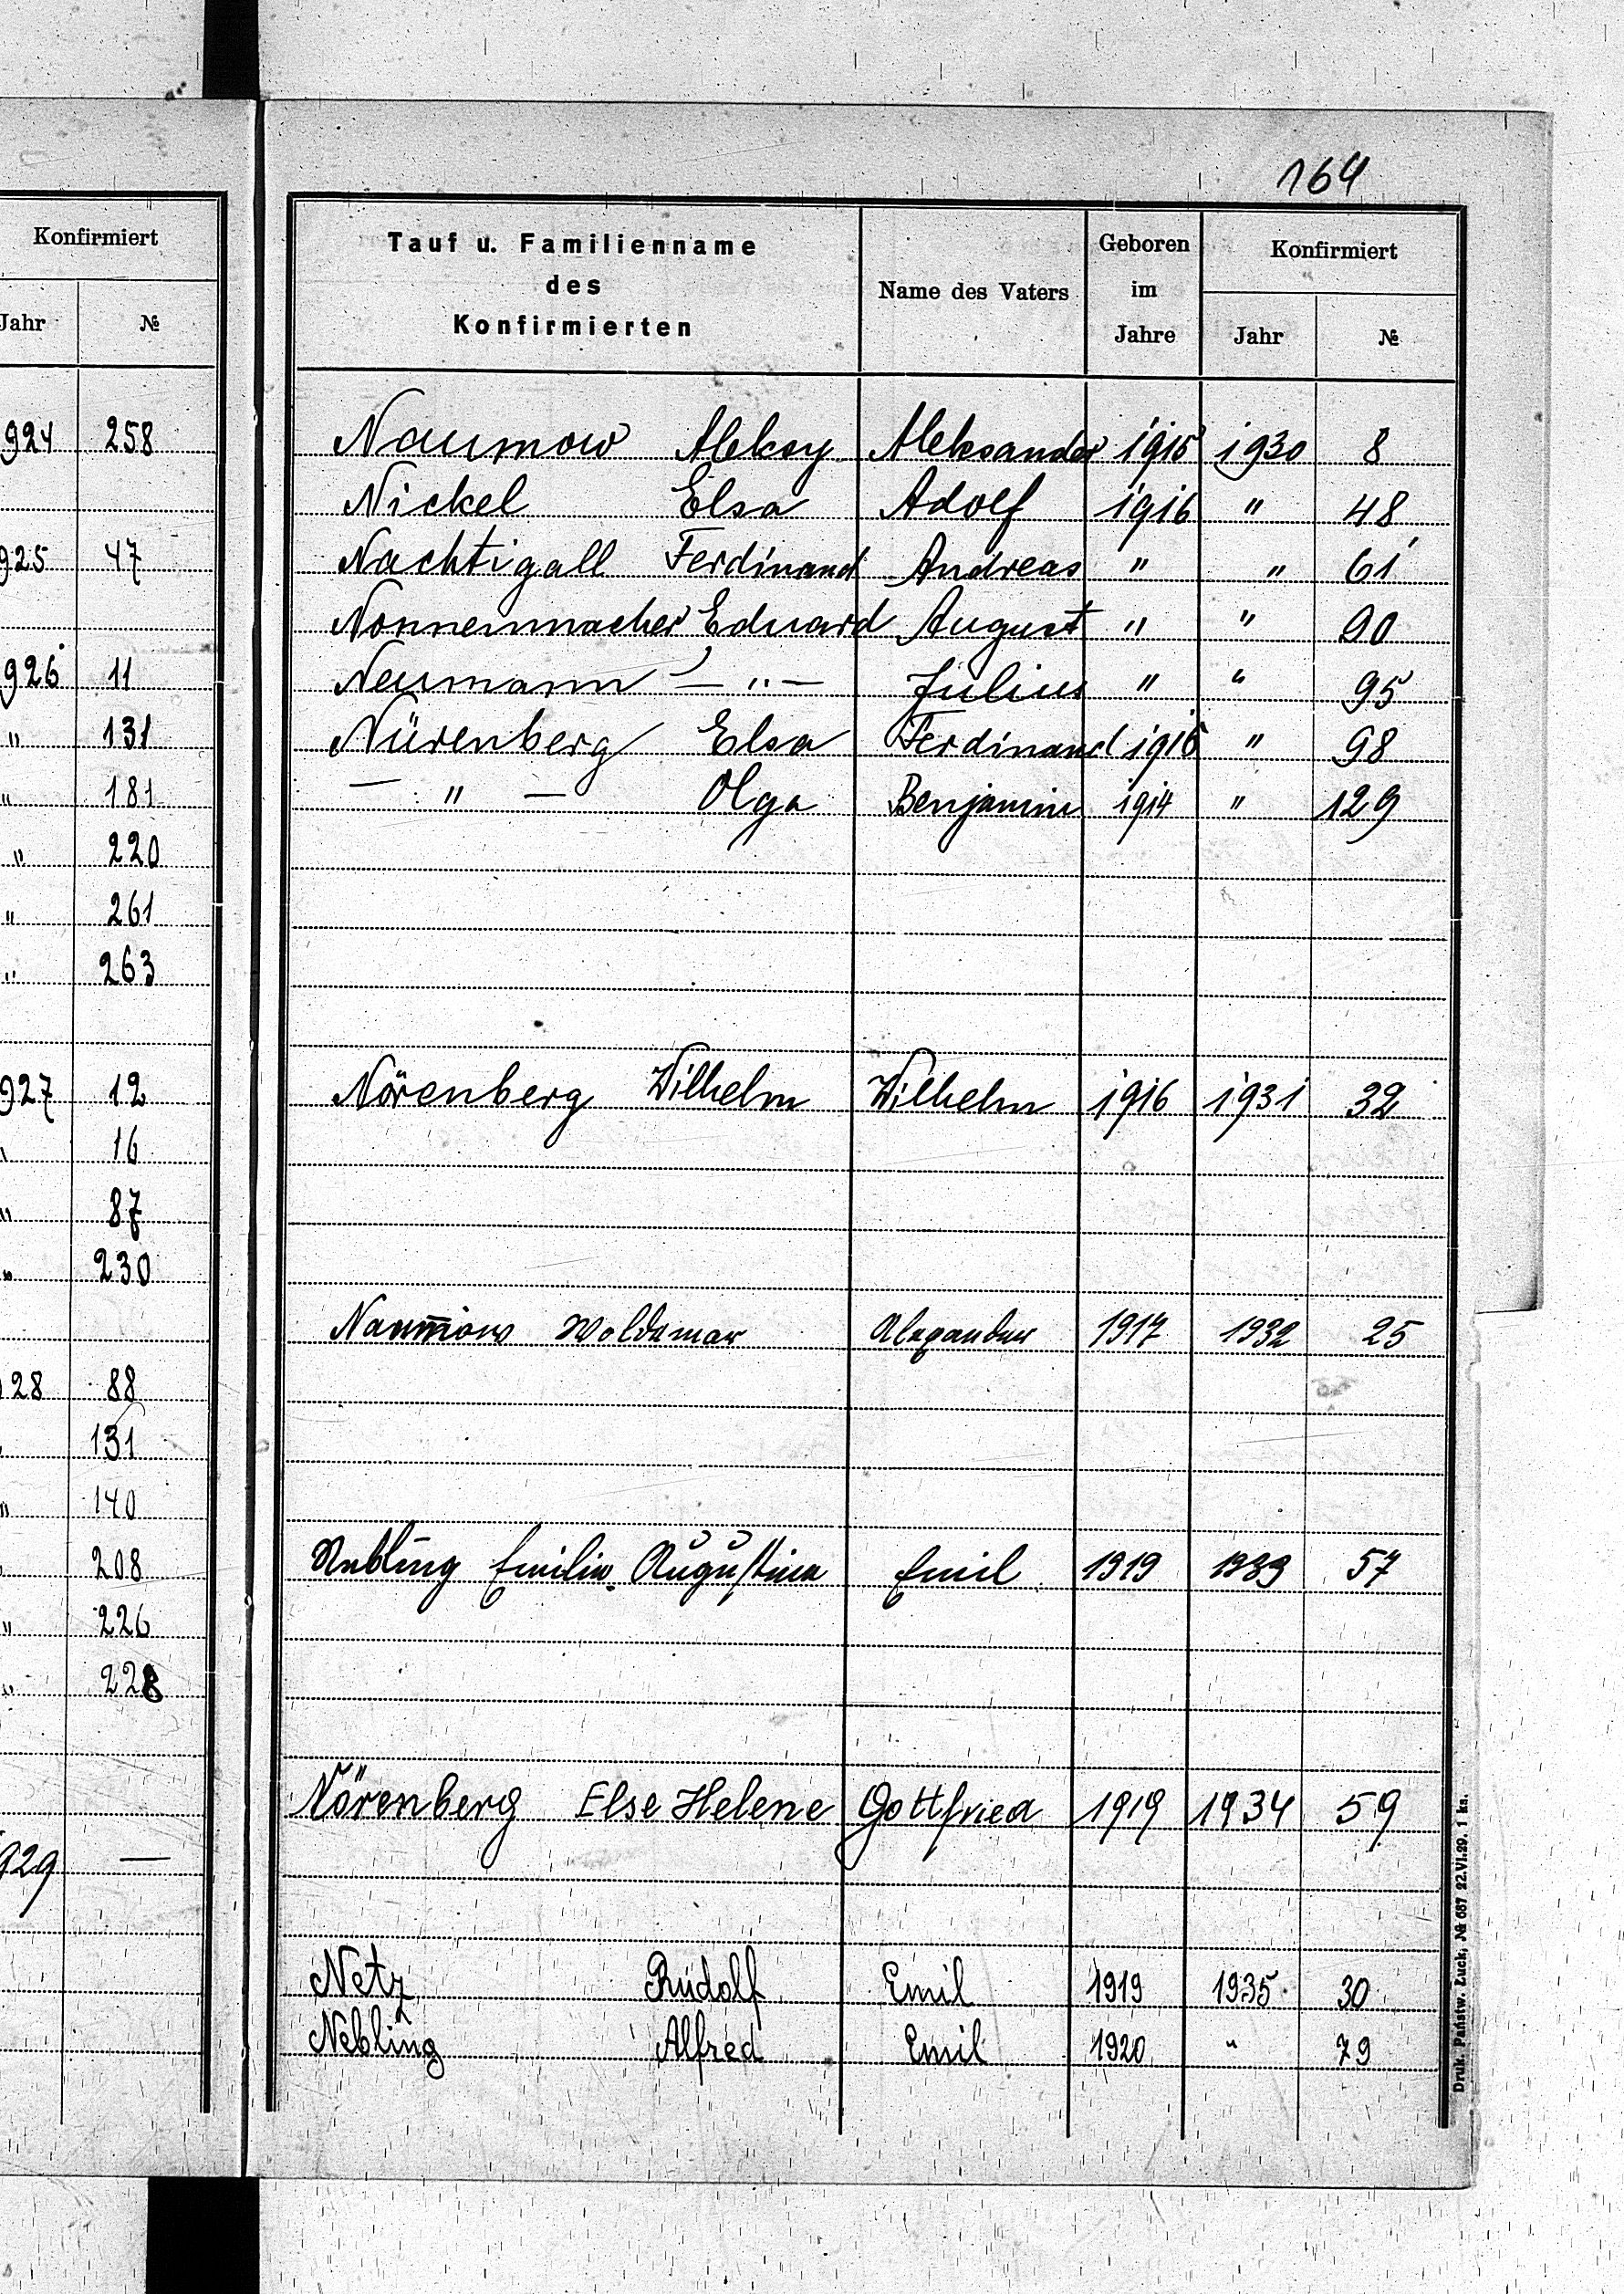 164
Konfirmiert
Jahr №
924 258
925 47
926 11
" 131
" 181
" 220
" 261
" 263
927 12
" 16
" 87
" 230
28 88
131
" 140
208
" 226
" 228
929 —
Tauf u. Familienname des Konfirmierten Name des Vaters Geboren im Jahre Konfirmiert Jahr №
Naumow Aleksy Aleksander 1915 1930 8
Nickel Elsa Adolf 1916 " 48
Nachtigall Ferdinand Andreas " " 61
Nonnenmacher Eduard August " " 90
Neumann — " — Julius " " 95
Nürenberg Elsa Ferdinand 1915 " 98
— " — Olga Benjamin 1914 " 129
Nörenberg Wilhelm Wilhelm 1916 1931 32
Naumow Woldemar Alexander 1917 1932 25
Nebling Emilie Augustina Emil 1919 1933 57
Nörenberg Else Helene Gottfried 1919 1934 59
Netz Rudolf Emil 1919 1935 30
Nebling Alfred Emil 1920 " 79
Druk. Państw. Łuck, № 687 22.VI.29. 1 ks.